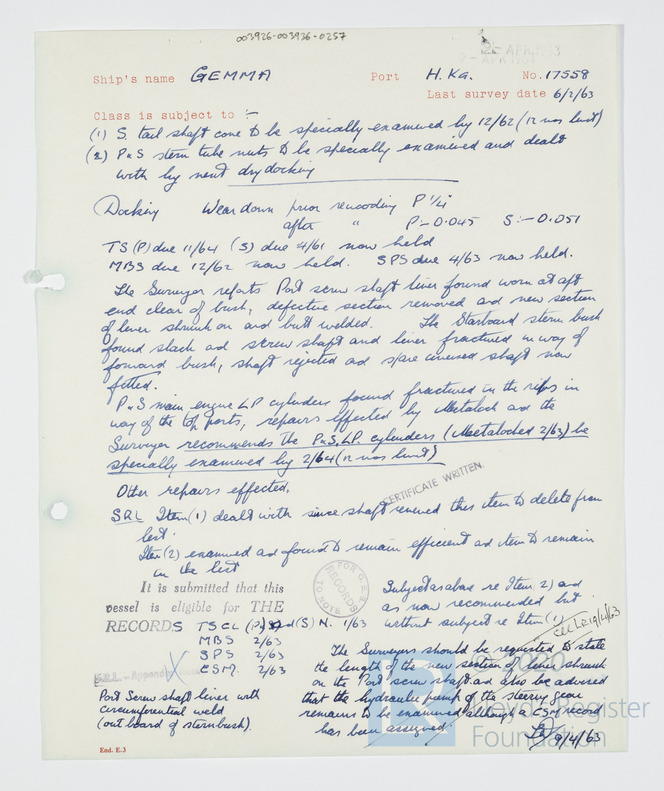 003926-003926-0257
2- APR 1963
Ship's name GEMMA Port H.Kg. No. 17558
Last survey date 6/2/63
Class is subject to :-
(1) S. tail shaft cone to be specially examined by 12/62 (12 mos limit)
(2) P & S stern tube nuts to be specially examined and dealt
with by next drydocking
Docking Weardown prior rewooding P 1/4"
after " P:- 0.045 S:- 0.051
TS (P) due 11/64 (S) due 4/61 now held
MBS due 12/62 now held. SPS due 4/63 now held.
The Surveyor reports Port screw shaft liner found worn at aft
end clear of bush, defective section removed and new section
of liner shrunk on and butt welded. The Starboard stern bush
found slack and screw shaft and liner fractured in way of
forward bush, shaft rejected and spare unused shaft now
fitted.
P & S main engine LP cylinders found fractured in the
way of the top ports, repairs effected by Metalock and the
Surveyor recommends the P & S LP cylinders (Metalocked 2/63) be
specially examined by 2/64 (12 mos limit)
Other repairs effected.
CERTIFICATE WRITTEN.
SRL Item (1) dealt with since shaft renewed this item to delete from
list.
Item (2) examined and found to remain efficient and item to remain
in the list
It is submitted that this
vessel is eligible for THE
RECORDS TSCL (P) (S) N. 1/63
MBS 2/63
SPS 2/63
CSM. 2/63
S.R.L. - Appendix
Port Screw shaft liner with
circumferential weld
(out board of sternbush).
Subject as above re Item 2) and
as now recommended but
without subject re Item (1)
The Surveyors should be requested to state
the length of the new section of liner shrunk
on the Port screw shaft and also be advised
that the hydraulic pump of the steering gear
remains to be examined although a CSM record
has been assigned.
9/4/63
End. E.3
© 2020
Lloyd's Register
Foundation